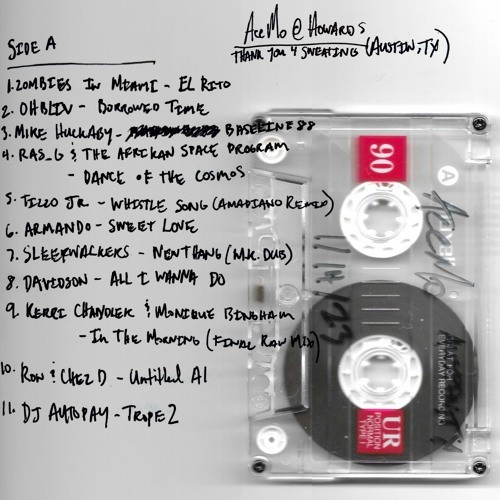 AceMo @ Howards
THANK YOU 4 SWEATING (AUSTIN, TX)
SIDE A
1. ZOMBIES IN MIAMI - EL RITO
2. OHBLIV - BORROWED TIME
3. MIKE HUCKABY - BASELINE 88
4. RAS_G & THE AFRIKAN SPACE PROGRAM
- DANCE OF THE COSMOS
5. TIZZO JR. - WHISTLE SONG (AMAPIANO REMIX)
6. ARMANDO - SWEET LOVE
7. SLEEPWALKERS - NEWTHANG (M.K. DUB)
8. DAVIDSON - ALL I WANNA DO
9. KERRI CHANDLER & MONIQUE BINGHAM
- IN THE MORNING (FINAL RAW MIX)
10. RON & CHEZ D - Untitled A1
11. DJ AUTOPAY - TROPE 2
90
A
ACEMO
11/11/23
GREAT FOR
EVERYDAY RECORDING
UR
POSITION
NORMAL
TYPE I